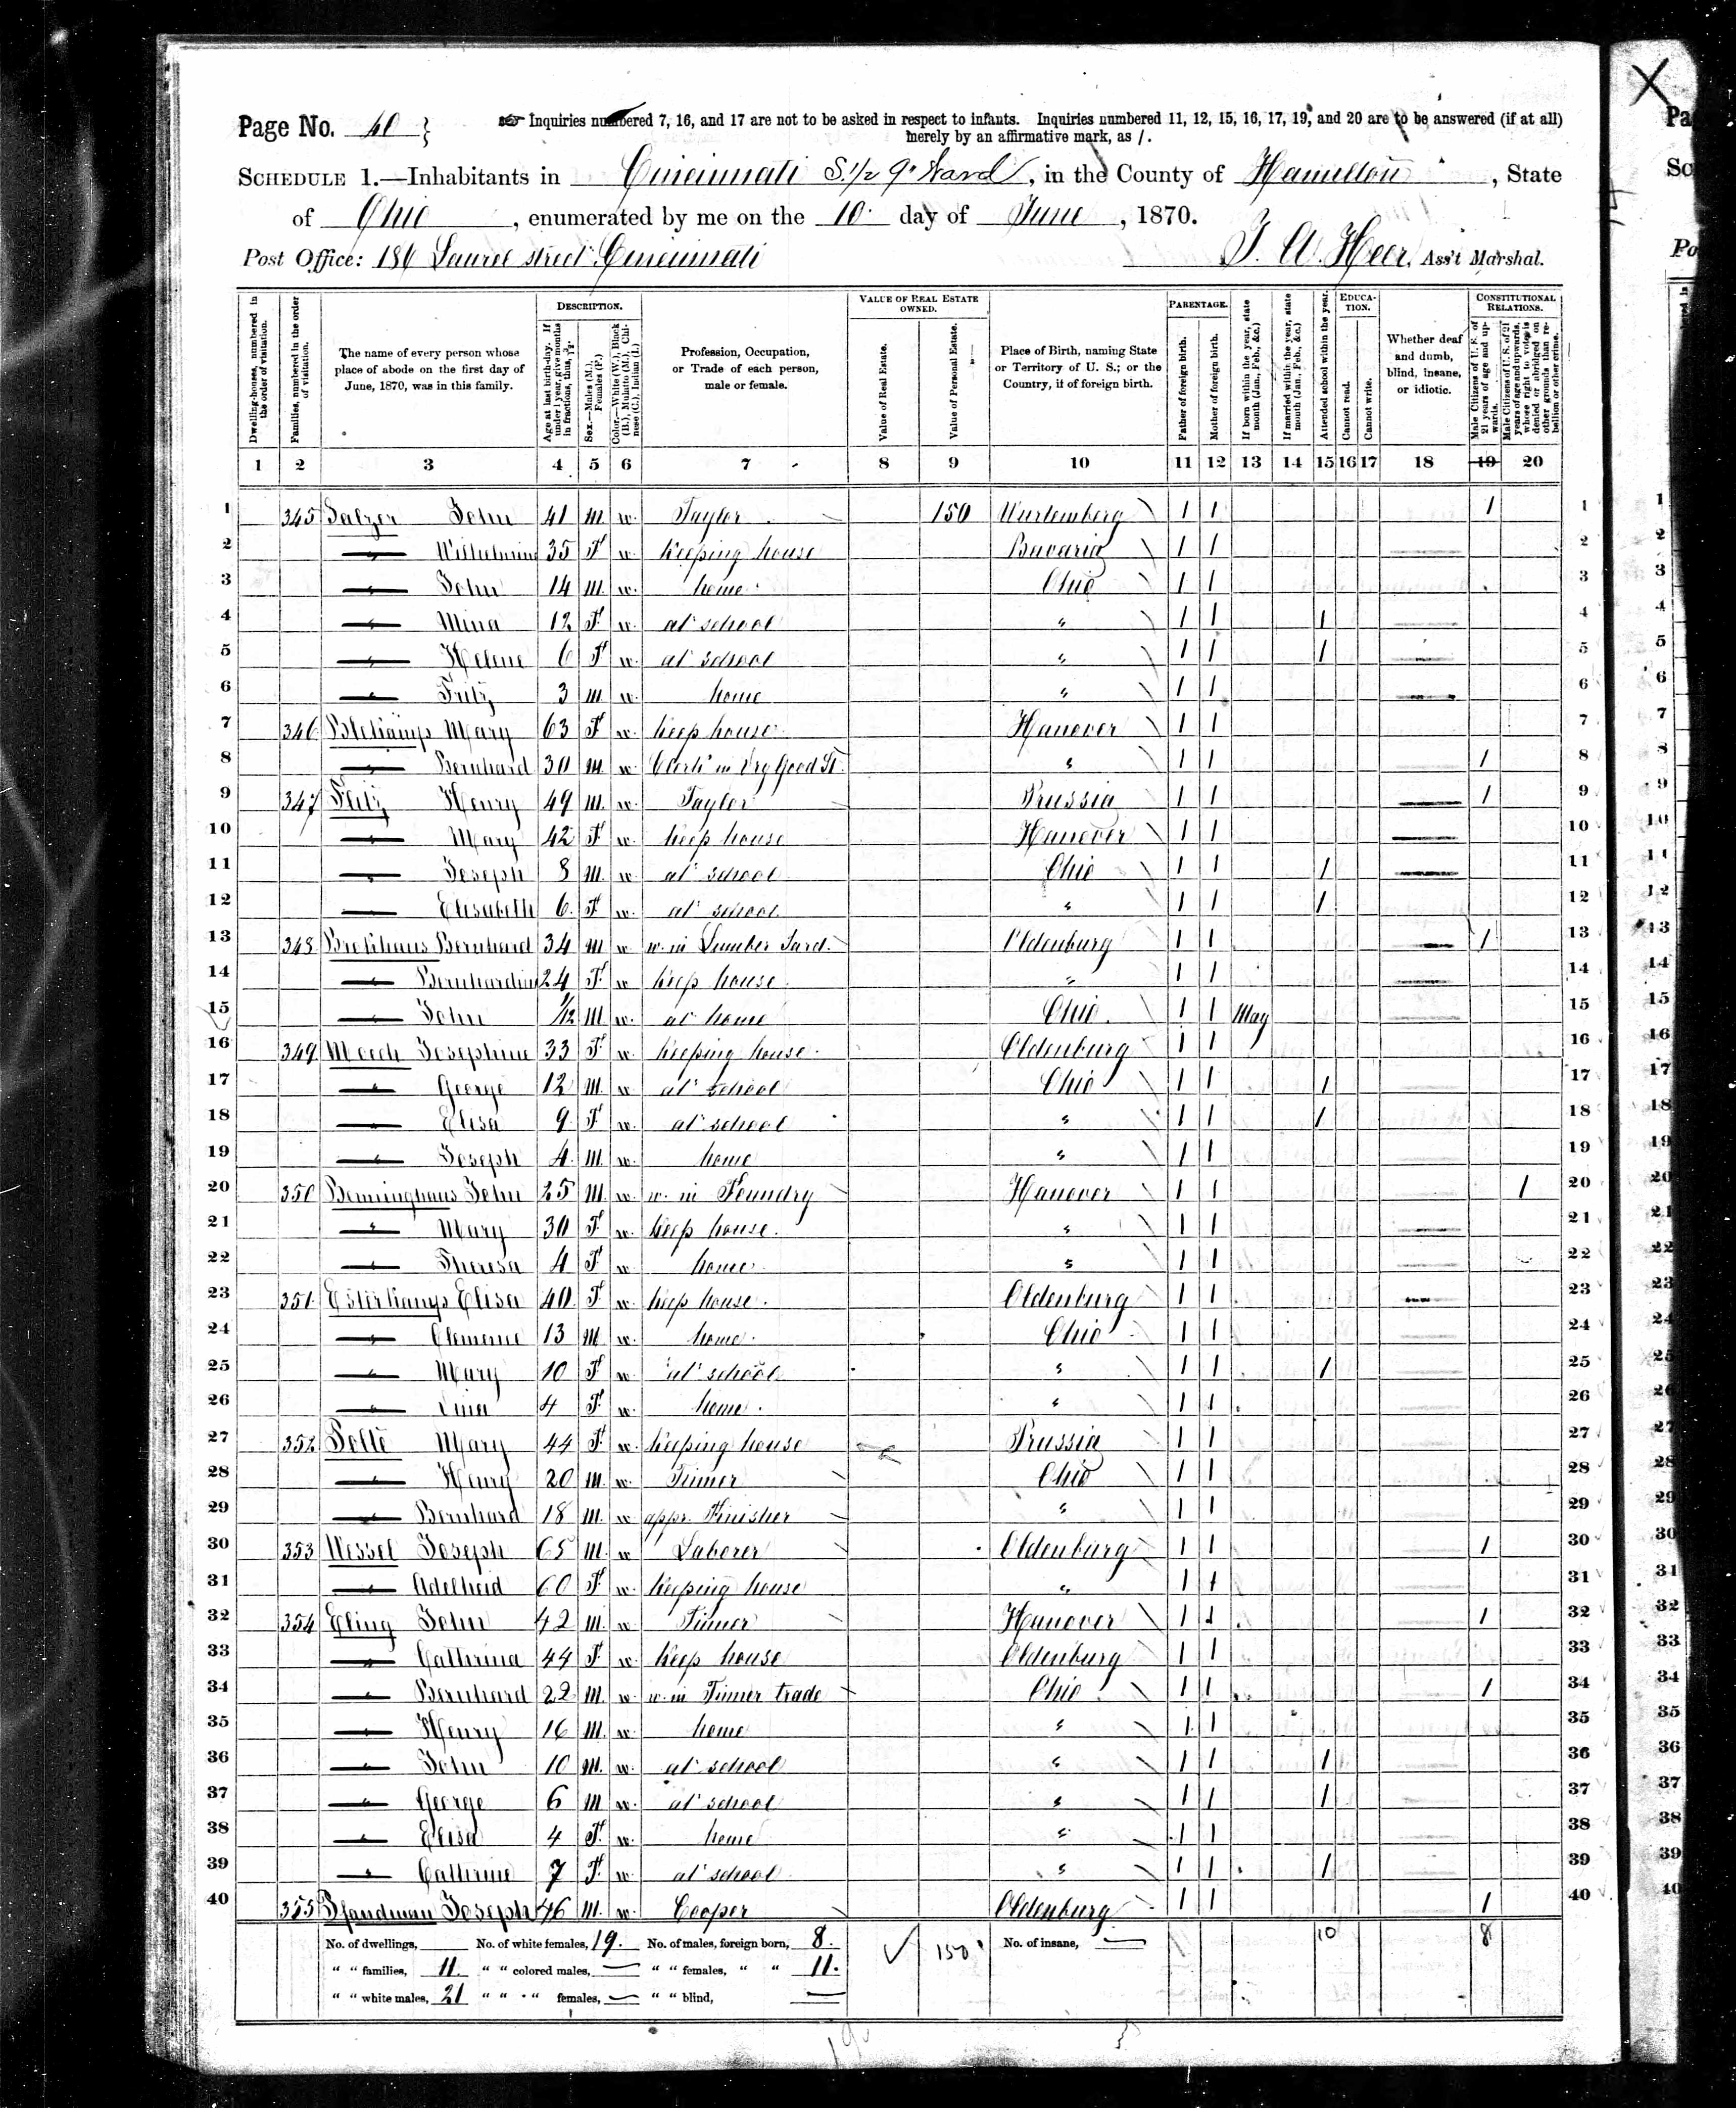 Page No. 40 }
Inquiries numbered 7, 16, and 17 are not to be asked in respect to infants. Inquiries numbered 11, 12, 15, 16, 17, 19, and 20 are to be answered (if at all) merely by an affirmative mark, as /.
SCHEDULE 1.—Inhabitants in Cincinnati S. 1/2 9" Ward, in the County of Hamilton, State
of Ohio, enumerated by me on the 10. day of June, 1870.
Post Office: 186 Laurel street Cincinnati
Ass't Marshal.
Dwelling-houses, numbered in the order of visitation.
Families, numbered in the order of visitation.
The name of every person whose place of abode on the first day of June, 1870, was in this family.
DESCRIPTION.
Age at last birth-day. If under 1 year, give months in fractions, thus, 3/12.
Sex.—Males (M.), Females (F.)
Color.—White (W.), Black (B.), Mulatto (M.), Chinese (C.), Indian (I.)
Profession, Occupation, or Trade of each person, male or female.
VALUE OF REAL ESTATE OWNED.
Value of Real Estate.
Value of Personal Estate.
Place of Birth, naming State or Territory of U. S.; or the Country, if of foreign birth.
PARENTAGE.
Father of foreign birth.
Mother of foreign birth.
If born within the year, state month (Jan., Feb., &c.)
If married within the year, state month (Jan., Feb., &c.)
Attended school within the year.
EDUCATION.
Cannot read.
Cannot write.
Whether deaf and dumb, blind, insane, or idiotic.
CONSTITUTIONAL RELATIONS.
Male Citizens of U. S. of 21 years of age and upwards.
Male Citizens of U. S. of 21 years of age and upwards, whose right to vote is denied or abridged on other grounds than rebellion or other crime.
1 2 3 4 5 6 7 8 9 10 11 12 13 14 15 16 17 18 19 20
1 345 Salzer John 41 M w. Taylor 150 Wurtemberg / / / 1
2 Wilhelmine 35 F w. Keeping house Bavaria / / 2
3 John 14 M. w. home Ohio / / 3
4 Mina 12 F. w. at school " / / / 4
5 Helene 6 F w. at school " / / / 5
6 Fritz 3 M. w. home " / / 6
7 346 Mary 63 F w. keep house Hanover / / 7
8 Bernhard 30 M. w. Clerk in Dry Good St. " / / / 8
9 347 Henry 49 M. w. Taylor Prussia / / / 9
10 Mary 42 F w. keep house Hanover / / 10
11 Joseph 8 M. w. at school Ohio / / / 11
12 Elisabeth 6. F w. at school " / / / 12
13 348 Bernhard 34 M w w. in Lumber Yard. Oldenburg / / / 13
14 Bernhardine 24 F. w keep house " / / 14
15 John 1/12 M w. at home Ohio. / / May 15
16 349 Josephine 33 F. w. keeping house Oldenburg / / 16
17 George 12 M. w at school Ohio / / / 17
18 Elisa 9 F w. at school " / / / 18
19 Joseph 4 M. w. home " / / 19
20 350 Benninghaus John 25 M. w. w. in Foundry Hanover / / / 20
21 Mary 30 F. w. keep house. " / / 21
22 Theresa 4 F w home " / / 22
23 351 Esterkamp Elisa 40 F w. keep house. Oldenburg / / 23
24 Clemence 13 M w. home. Ohio / / 24
25 Mary 10 F w. at school " / / / 25
26 Lina 4 F. w. home. " / / 26
27 352 Mary 44 F. w keeping house Prussia / / 27
28 Henry 20 M. w. Tinner Ohio / / 28
29 Bernhard 18 M. w appr. Finisher " / / 29
30 353 Wessel Joseph 65 M. w Laborer Oldenburg / / / 30
31 Adelheid 60 F. w. keeping house " / / 31
32 354 Eling John 42 M. w. Tinner Hanover / / / 32
33 Cathrina 44 F. w. keep house Oldenburg / / 33
34 Bernhard 22 M. w. w. in Tinner trade Ohio / / / 34
35 Henry 16 M. w. home " / / 35
36 John 10 M. w. at school " / / / 36
37 George 6 M w. at school " / / / 37
38 Elisa 4 F. w. home " / / 38
39 Cathrine 7 F. w at school " / / / 39
40 355 Joseph 46 M. w. Cooper Oldenburg / / / 40
No. of dwellings, No. of white females, 19. No. of males, foreign born, 8. 150 No. of insane, — 10 8
" " families, 11. " " colored males, — " " females, " " 11.
" " white males, 21 " " " females, — " " blind, —